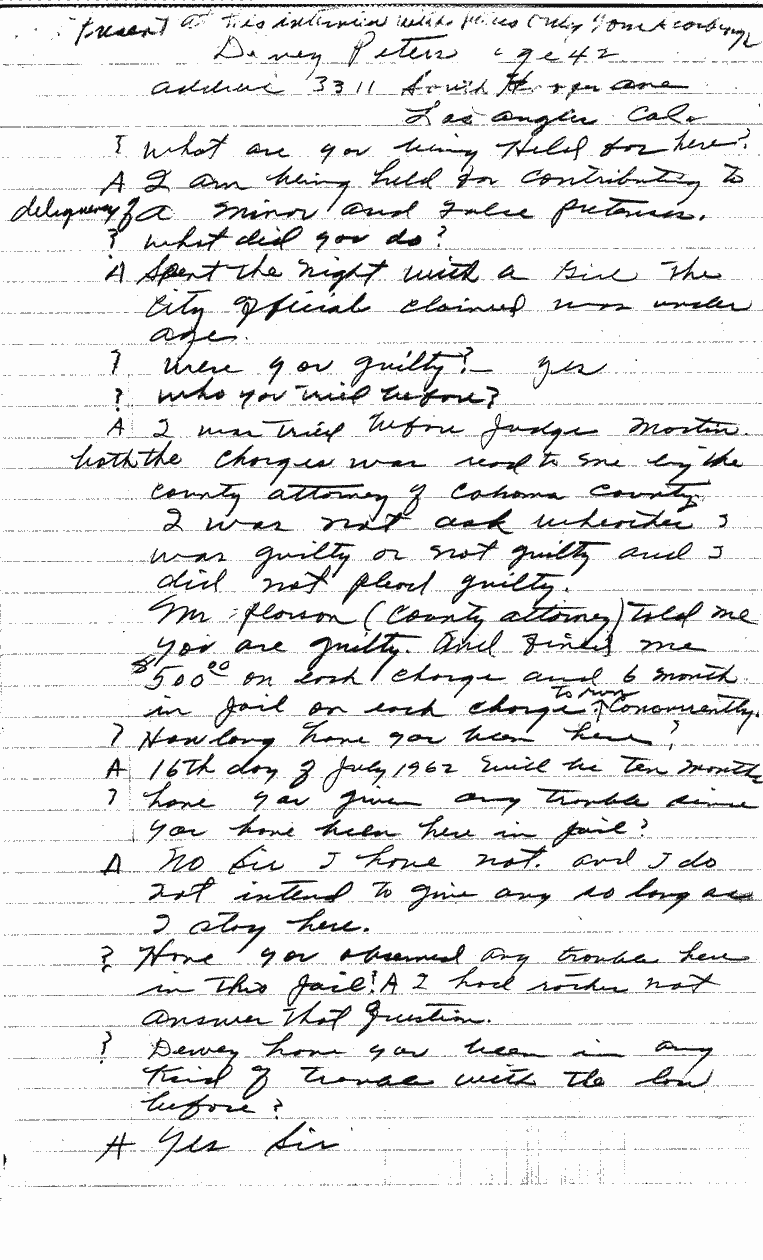 Present at this interview
Dewey Peters age 42
address 3311 South Hooper ave
Los angles Cal.
? What are you being Held for here?
A I am being held for contributing to
deliquency of a minor and False pretenses.
? what did you do?
A Spent the night with a Girl The
City Official claimed was under
age.
? were you guilty? yes
? who you tried before?
A I was tried before Judge Mostin.
both the charges was read to me by the
county attorney of Cohoma County
I was not ask wheather I
was guilty or not guilty and I
did not plead guilty.
Mr (County attorney) told me
you are guilty. And Fined me
$500.00 on each charge and 6 month
in jail on each charge to run Concurrently.
? How long have you been here?
A 16th day of July 1962 will be ten months
? have you given any trouble since
you have been here in jail?
A No Sir I have not. and I do
not intend to give any so long as
I stay here.
? Have you observed any trouble here
in this jail? A I had rather not
answer that Question.
? Dewey have you been in any
kind of trouble with the law
before?
A Yes Sir